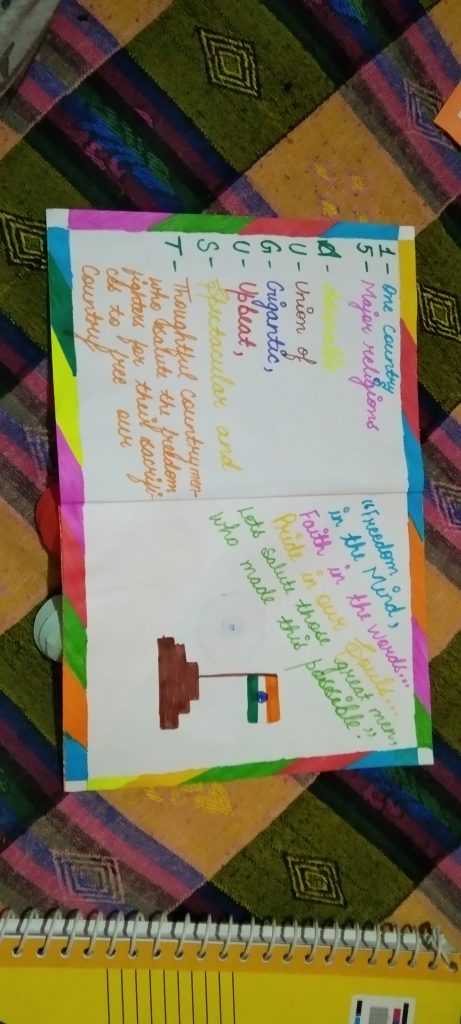 1 - One Country
5 - Major religions
A - Adorable
U - Union of
G - Gigantic,
U - Upbeat,
S - Spectacular and
T - Thoughtful Countrymen
who salute the freedom
fighters for their sacrifi-
ces to free our
Country
"Freedom
in the Mind,
Faith in the words...
Pride in our Souls...
Lets salute those great men,
who made this possible."